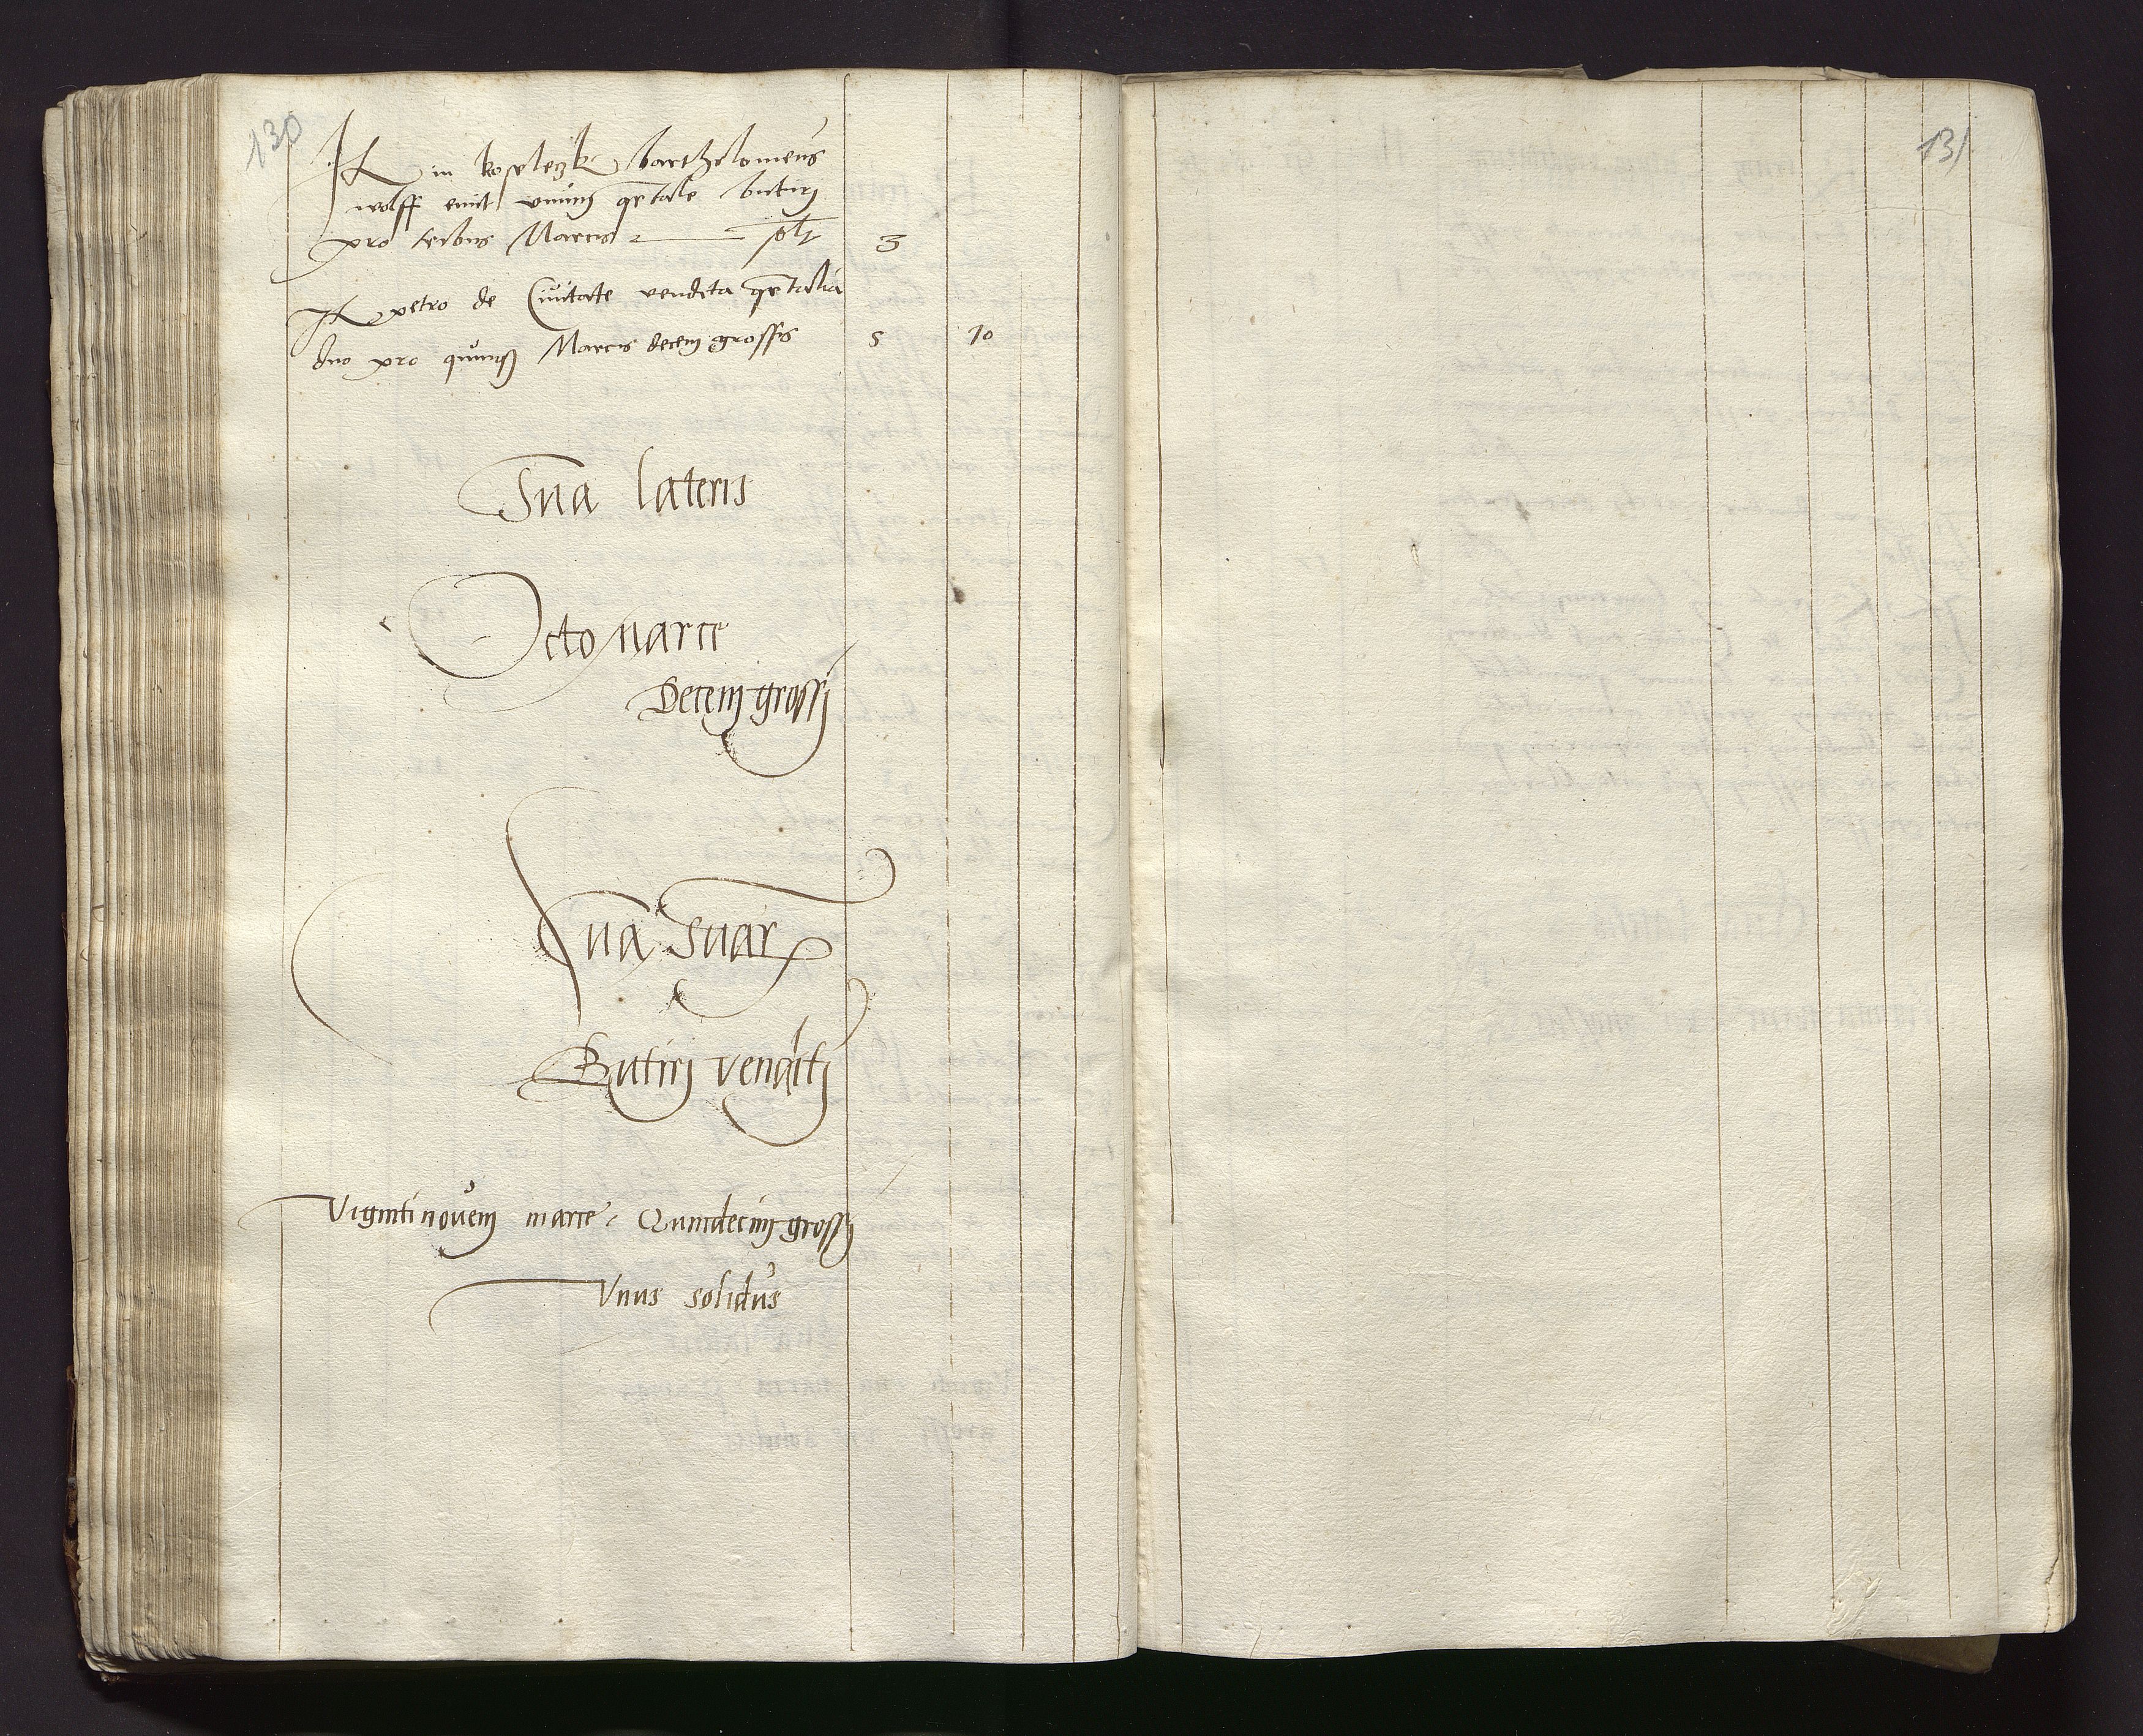 130
It in koselezk bartholomeus
wolff emit vnum qrtale butiri
pro tribus Marcis solt 3
It petro de Ciuitate vendita qrtalia
duo pro quinq Marcis decem grossis 5 10
Sna lateris
Octo marce
Decem grossi
Sna Snar
Butiri venditi
Viginti nouem marce Quindecim grossi
Vnus solidus
131